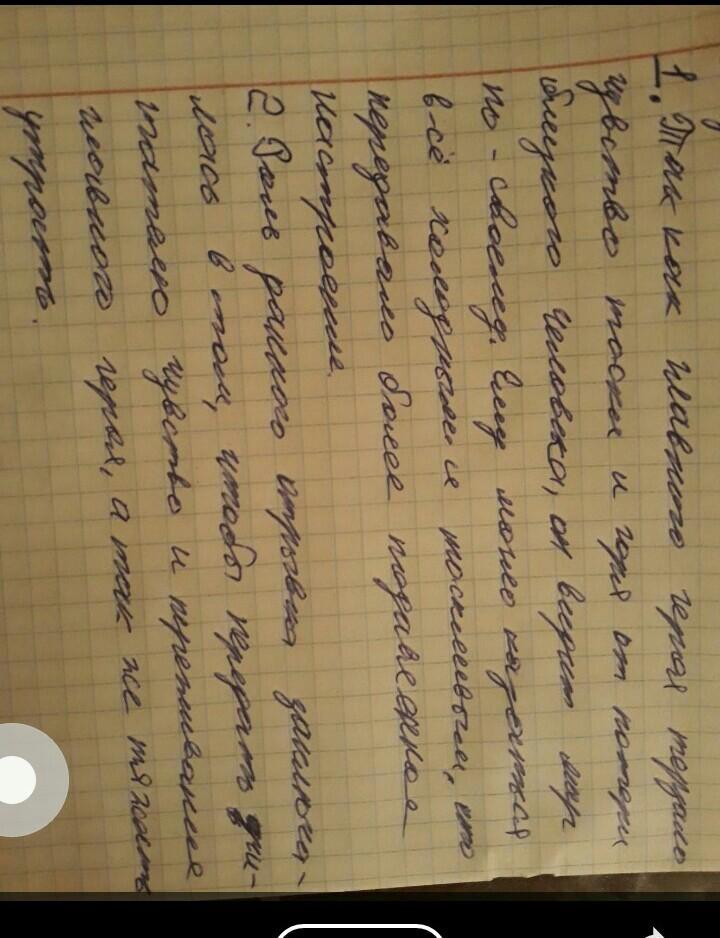 1. Так как главного героя терзало
чувство тоски и горя от потери
близкого человека, он видит мир
по-своему. Ему могло казаться
всё холодным и тоскливым, что
передавало более подавленное
настроение.
2. Роль данного отрывка заключа-
лась в том, чтобы передать чи-
тателю чувства и переживания
главного героя, а так же тяжесть
утраты.